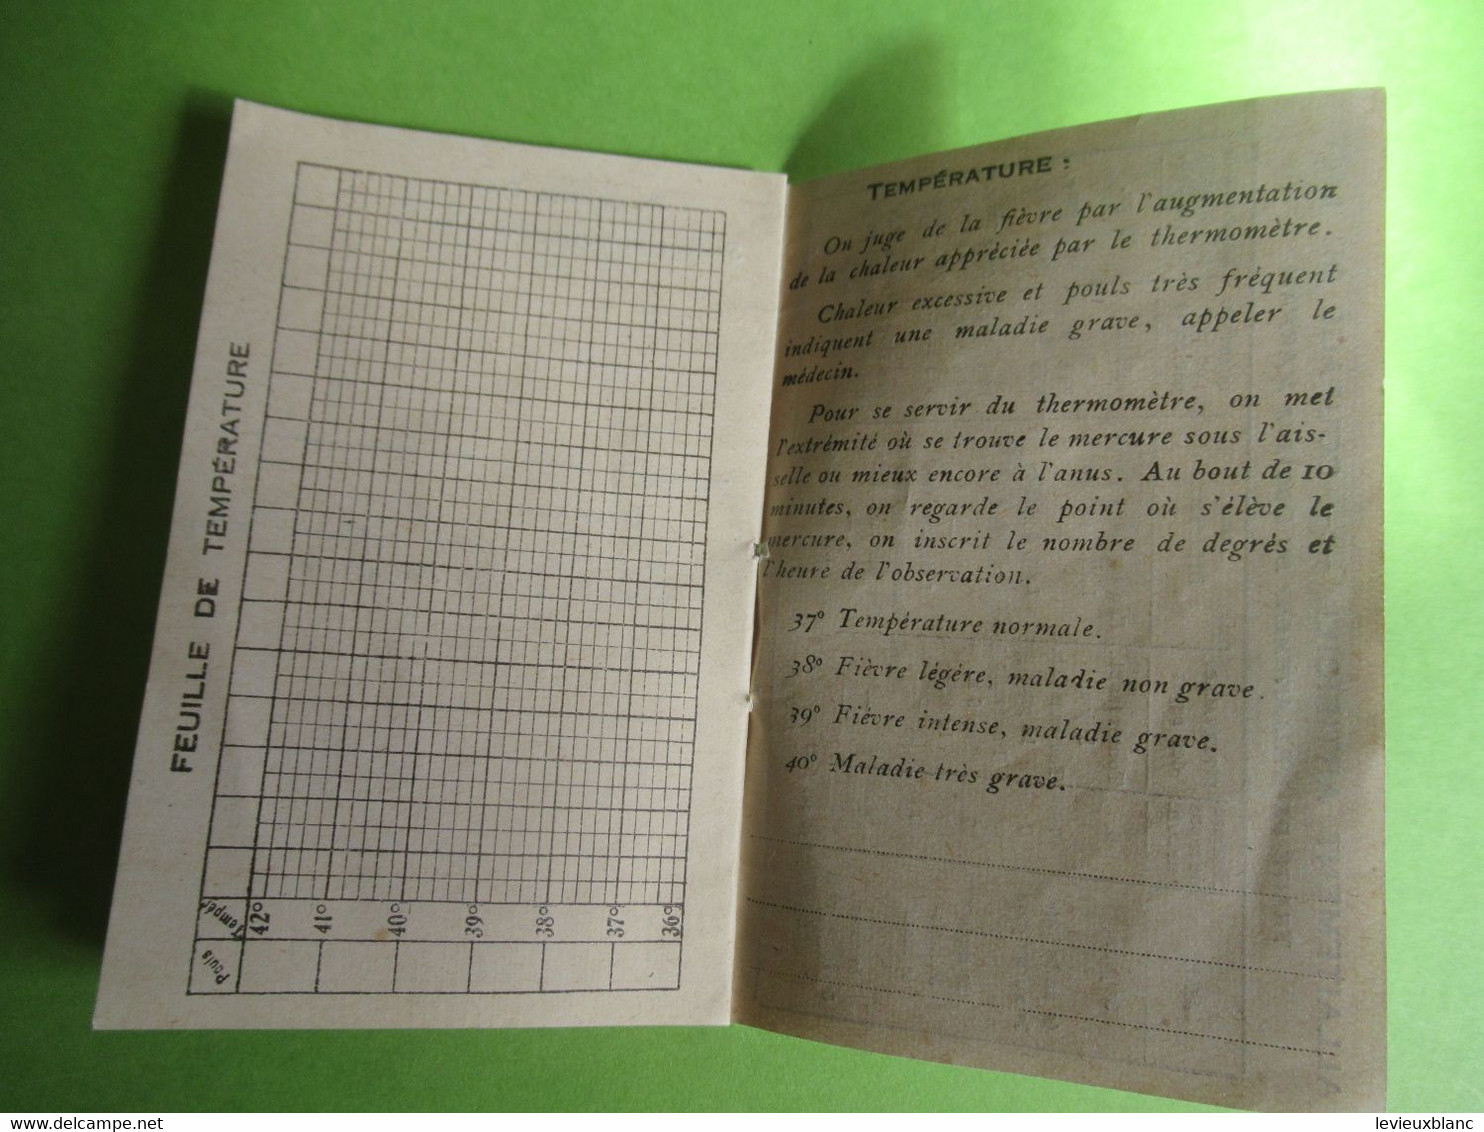 FEUILLE DE TEMPÉRATURE
Pouls
Tempér
42°
41°
40°
39°
38°
37°
36°
TEMPÉRATURE :
On juge de la fièvre par l'augmentation
de la chaleur appréciée par le thermomètre.
Chaleur excessive et pouls très fréquent
indiquent une maladie grave, appeler le
médecin.
Pour se servir du thermomètre, on met
l'extrémité où se trouve le mercure sous l'ais-
selle ou mieux encore à l'anus. Au bout de 10
minutes, on regarde le point où s'élève le
mercure, on inscrit le nombre de degrés et
l'heure de l'observation.
37° Température normale.
38° Fièvre légére, maladie non grave.
39° Fiévre intense, maladie grave.
40° Maladie très grave.
www.delcampe.net
levieuxblanc